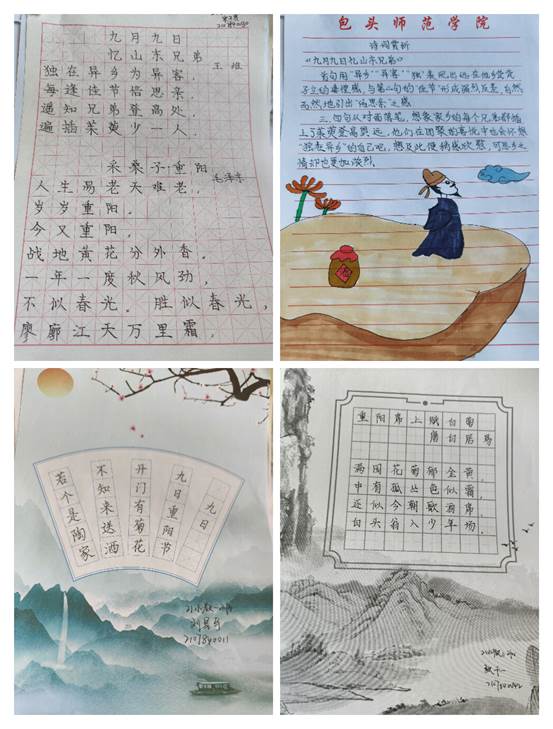 九月九日
忆山东兄弟
王维
独在异乡为异客，
每逢佳节倍思亲。
遥知兄弟登高处，
遍插茱萸少一人。
采桑子·重阳
毛泽东
人生易老天难老，
岁岁重阳。
今又重阳，
战地黄花分外香。
一年一度秋风劲，
不似春光。胜似春光，
廖廓江天万里霜。
包头师范学院
诗词赏析
《九月九日忆山东兄弟》
首句用“异乡”“异客”“独”表现出远在他乡茕茕
孑立的凄惶感，与第二句的“佳节”形成强烈反差，自然
而然地引出“倍思亲”之感
三、四句从对面落笔，想象家乡的每个兄弟都插
上了茱萸登高眺远，他们在团聚的喜悦中也会怀想
“独在异乡”的自己吧，想及此便稍感欣慰，可思乡之
情却也更加浓烈。
酒
九日
九日重阳节
开门有菊花
不知来送酒
若个是陶家
2107840011
重阳席上赋白菊
唐白居易
满园花菊郁金黄，
中有孤丛色似霜。
还似今朝歌酒席，
白头翁入少年场。